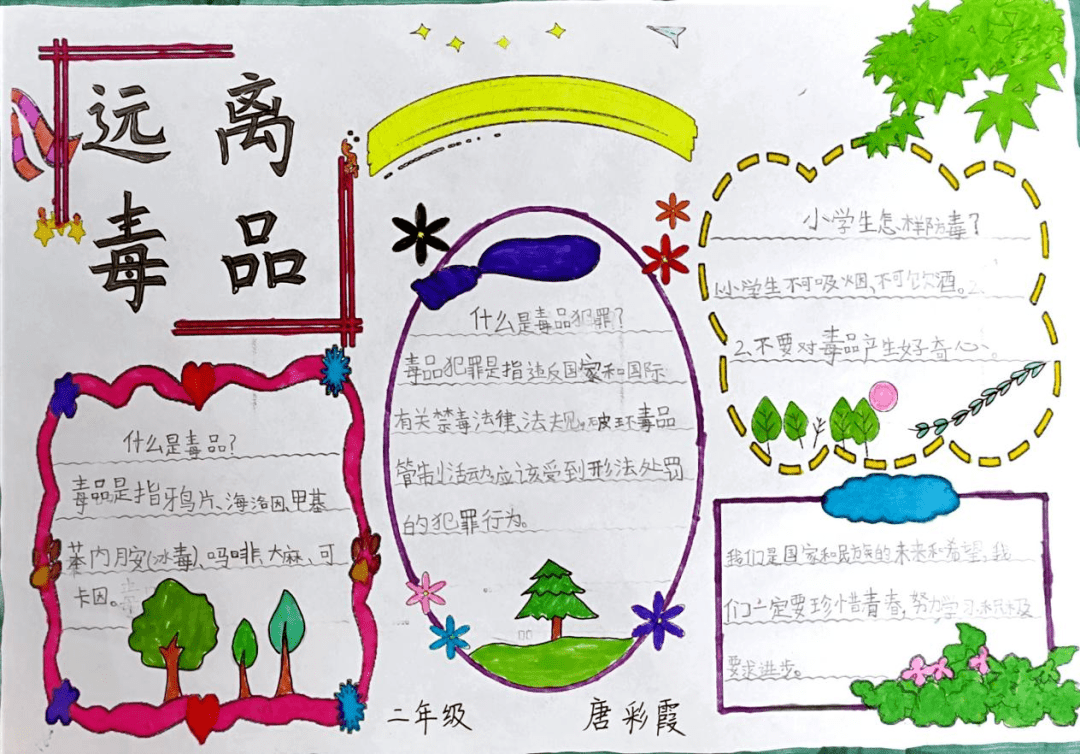 远离
毒品
什么是毒品?
毒品是指鸦片、海洛因,甲基
苯丙胺(冰毒)、吗啡、大麻、可
卡因。
什么是毒品犯罪?
毒品犯罪是指违反国家和国际
有关禁毒法律、法规,破坏毒品
管制活动,应该受到形法处罚
的犯罪行为。
小学生怎样防毒?
1.小学生不可吸烟、不可饮酒。2.
2.不要对毒品产生好奇心。
我们是国家和民族的未来和希望,我
们一定要珍惜青春,努力学习,积极
要求进步。
二年级 唐彩霞